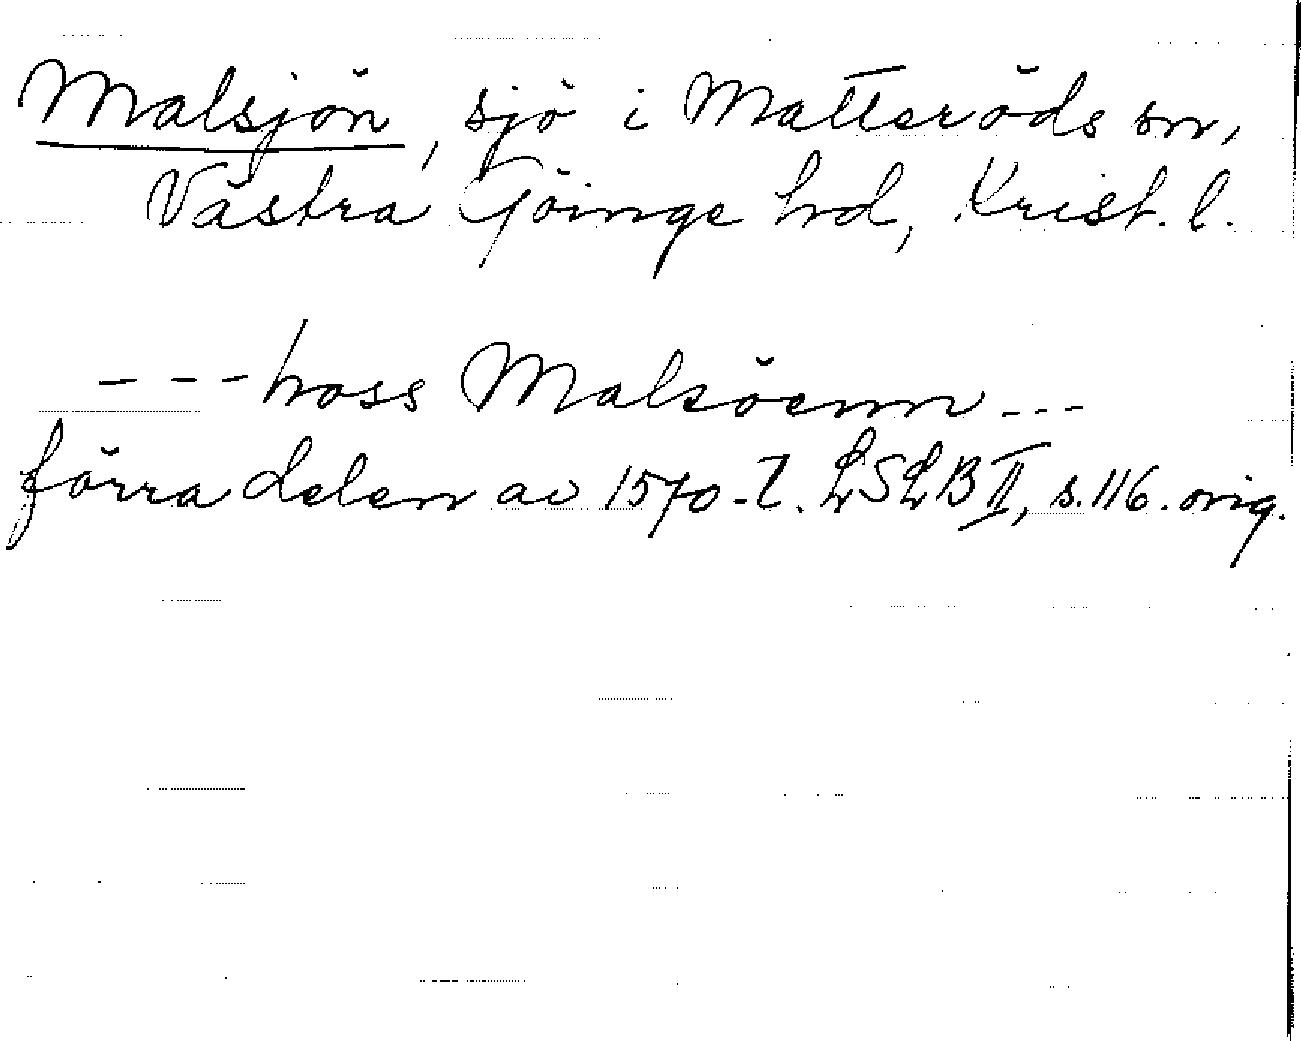 Malsjön, sjö i Matteröds sn,
Västra Göinge hd, Krist. l.
--- hoss Malsöenn ---
förra delen av 1570-t. LSLB II, s. 116. orig.